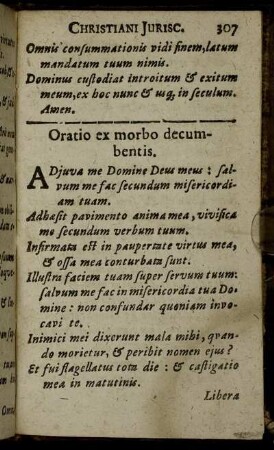 CHRISTIANI JURISC. 307
Omnis consummationis vidi finem, latum
mandatum tuum nimis.
Dominus custodiat introitum & exitum
meum, ex hoc nunc & usq, in seculum.
Amen.
Oratio ex morbo decum-
bentis.
ADjuva me Domine Deus meus: sal-
vum me fac secundum misericordi-
am tuam.
Adhæsit pavimento anima mea, vivifica
me secundum verbum tuum.
Infirmata est in paupertate virtus mea,
& ossa mea conturbata sunt.
Illustra faciem tuam super servum tuum:
salvum me fac in misericordia tua Do-
mine: non confundar quoniam invo-
cavi te.
Inimici mei dixerunt mala mihi, quan-
do morietur, & peribit nomen ejus?
Et fui flagellatus tota die: & castigatio
mea in matutinis.
Libera